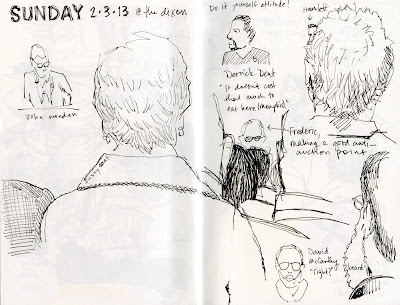 SUNDAY 2·3·13 @ the dixon
John weeden
Do it yourself attitude!
Hamlett
Derrick Dent
"it doesn't cost
that much to
eat here (memphis)"
Frederic,
making a good anti-
auction point
David
McCarthy
"(right)"
beard